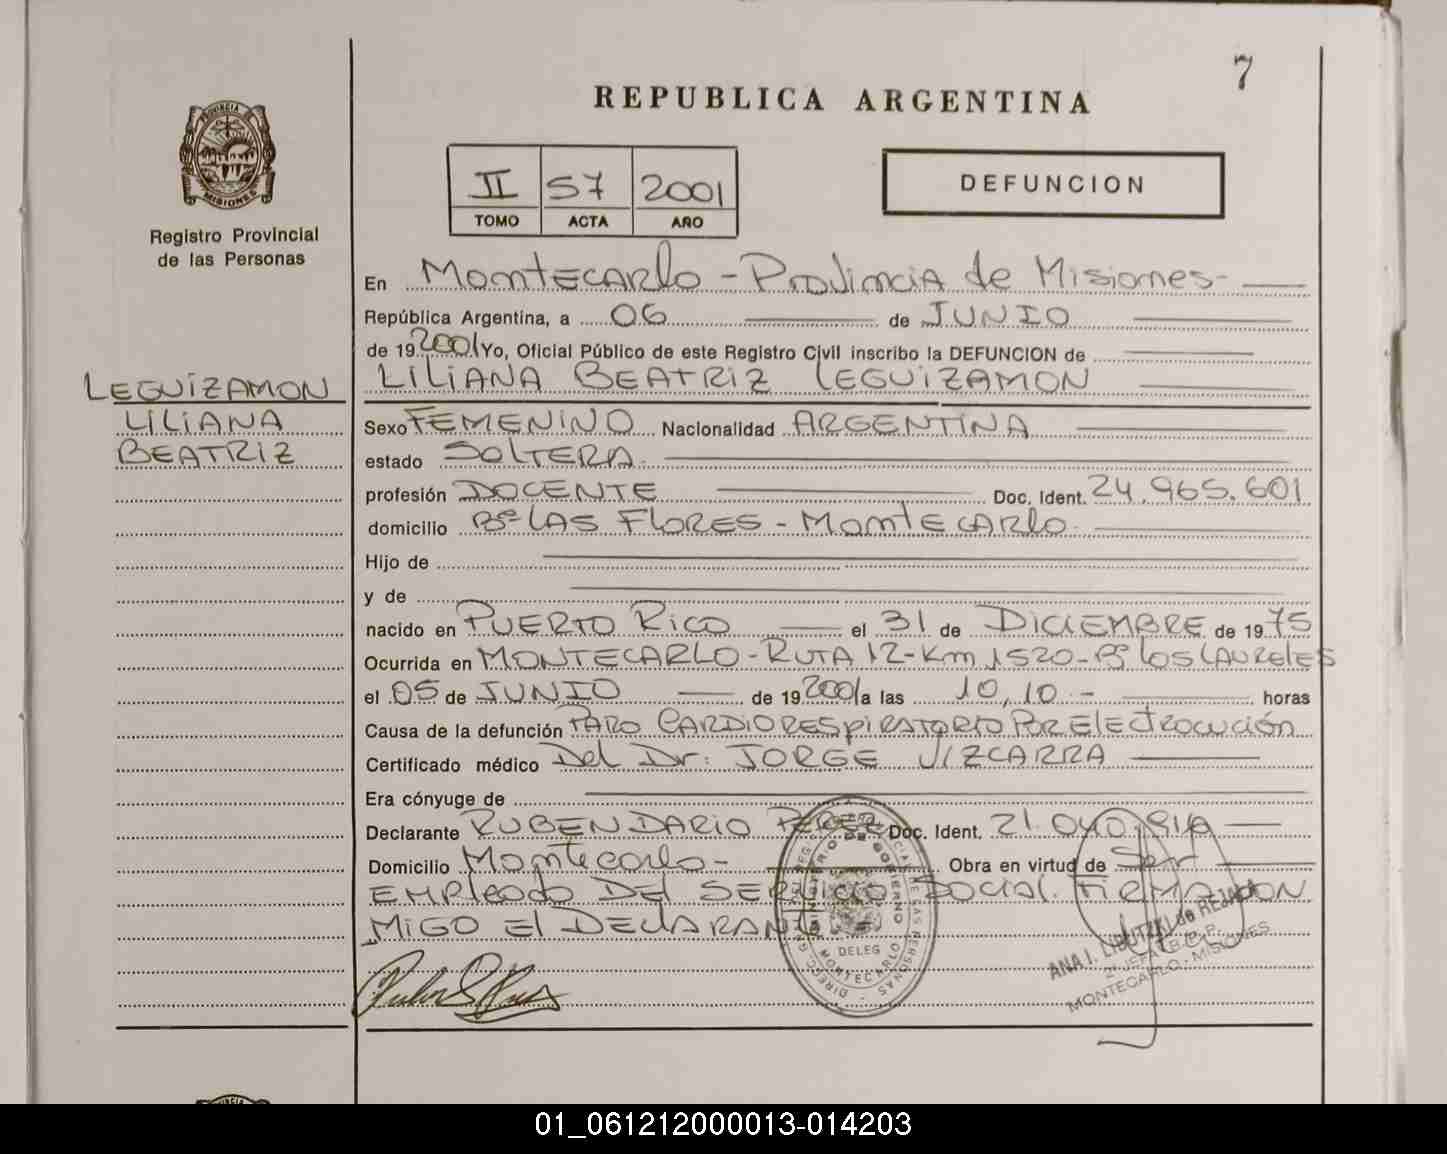 7
REPUBLICA ARGENTINA
PROVINCIA DE
MISIONES
Registro Provincial
de las Personas
II 57 2001
TOMO ACTA AÑO
DEFUNCION
En Montecarlo - Provincia de Misiones -
República Argentina, a 06 de JUNIO
de 19 2001 Yo, Oficial Público de este Registro Civil inscribo la DEFUNCION de
LILIANA BEATRIZ LEGUIZAMON
LEGUIZAMON
LILIANA
BEATRIZ
Sexo FEMENINO Nacionalidad ARGENTINA
estado SOLTERA.
profesión DOCENTE Doc. Ident. 24.965.601
domicilio Bº LAS FLORES - MONTECARLO.
Hijo de
y de
nacido en PUERTO RICO el 31 de DICIEMBRE de 1975
Ocurrida en MONTECARLO - RUTA 12 - Km 1520 - Bº LOS LAURELES
el 05 de JUNIO de 19 2001 a las 10,10 - horas
Causa de la defunción PARO CARDIORESPIRATORIO POR Electrocución
Certificado médico Del Dr: JORGE VIZCARRA
Era cónyuge de
Declarante RUBEN DARIO Doc. Ident. 21.040.919
Domicilio Montecarlo - Obra en virtud de Ser
EMPLEADO DEL SERVICIO SOCIAL. FIRMA CON
MIGO El DECLARANTE.
MINISTERIO DE GOBIERNO
DELEG
MONTECARLO
ANA I. de
2º JEFA
MONTECARLO - MISIONES
01_061212000013-014203